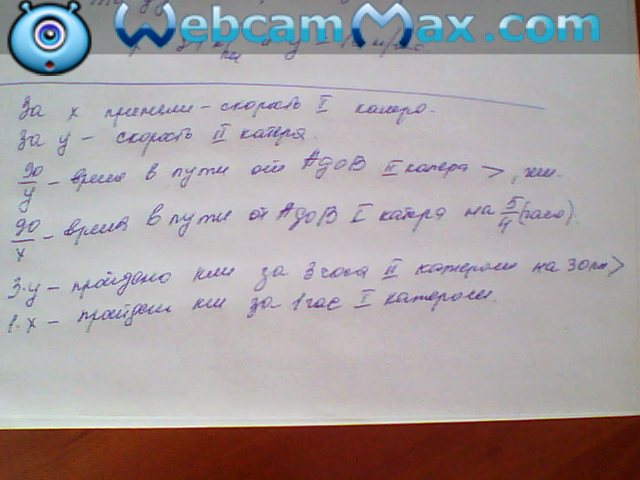 WebcamMax.com
За x приняли - скорость I катера.
За y - скорость II катера.
90/y - время в пути от А до В II катера >, чем.
90/x - время в пути от А до В I катера на 5/4 (часа).
3·y - пройдено км за 3 часа II катером на 30км >
1·x - пройден км за 1 час I катером.